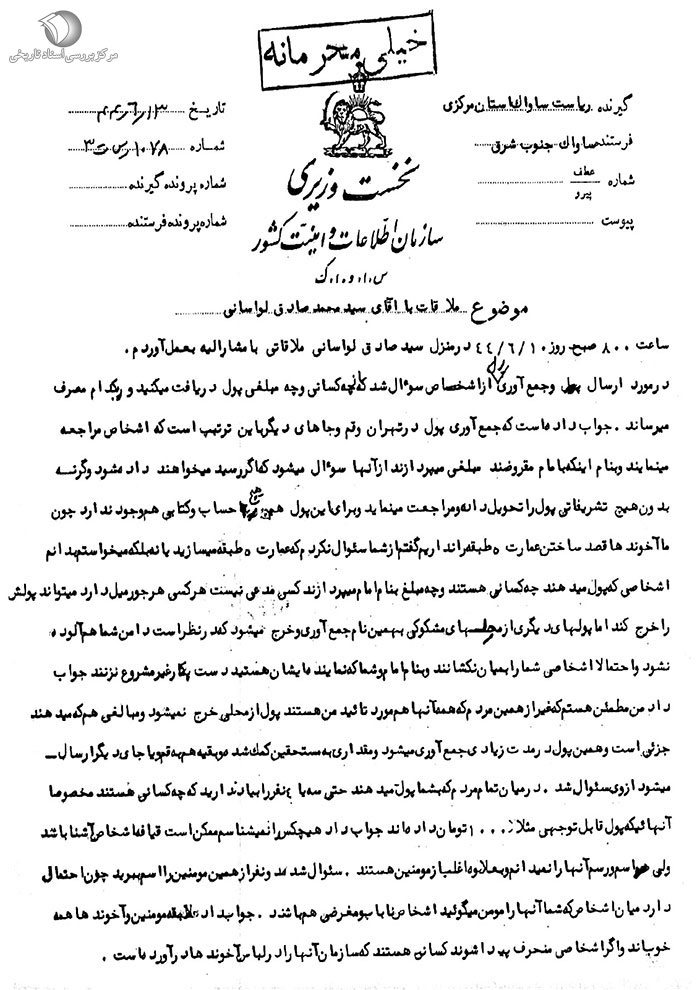 مرکز بررسی اسناد تاریخی
خیلی محرمانه
گیرنده ریاست ساواک استان مرکزی
فرستنده ساواک جنوب شرق
شماره عطف پیرو
پیوست
نخست وزیری
سازمان اطلاعات و امنیت کشور
س.ا.و.ا.ک
تاریخ ۴۴/۶/۱۳
شماره ۱۰۷۸/س ت ۳
شماره پرونده گیرنده
شماره پرونده فرستنده
موضوع ملاقات با آقای سید محمد صادق لواسانی
ساعت ۸۰۰ صبح روز ۴۴/۶/۱۰ در منزل سید صادق لواسانی ملاقاتی با مشارالیه بعمل آوردم.
در مورد ارسال پول و جمع آوری از اشخاص سوال شد که چه کسانی وچه مبلغی پول دریافت میکنید و بکدام مصرف
میرساند. جواب داده است که جمع آوری پول در تهران وقم وجاهای دیگر باین ترتیب است که اشخاص مراجعه
مینمایند وبنام اینکه بامام مقروضند مبلغی میپردازند از آنها سوال میشود که اگر رسید میخواهند داده شود وگرنه
بدون هیچ تشریفاتی پول را تحویل داده ومراجعت مینماید وبرای این پول هم هیچ حساب وکتابی هم وجود ندارد چون
ما آخوند ها قصد ساختن عمارت ۵ طبقه را نداریم گفتم از شما سئوال نکردم که عمارت ۵ طبقه میسازید یا نه بلکه میخواستم بدانم
اشخاصی که پول میدهند چه کسانی هستند وچه مبلغ بنام امام میپردازند کسی مدعی نیست هرکسی هرجور میل دارد میتواند پولش
را خرج کند اما پولهای دیگری از محلهای مشکوکی بهمین نام جمع آوری وخرج میشود که در نظر است دامن شما هم آلوده
نشود واحتمالا اشخاصی شما را بمیان نکشانند وبنام امام وشما که نماینده ایشان هستید دست بکار غیر مشروع نزنند جواب
داد من مطمئن هستم که غیر از همین مردم که همه آنها هم مورد تائید من هستند پول از محلی خرج نمیشود ومبالغی هم که میدهند
جزئی است وهمین پول در مدت زیادی جمع آوری میشود ومقداری به مستحقین کمک شده وبقیه هم به قم ویا جای دیگر ارسال ـ
میشود از وی سئوال شد. در میان تمام مردم که بشما پول میدهند حتی سه یا ٤ نفر را بیاد ندارید که چه کسانی هستند مخصوصا
آنهائیکه پول قابل توجهی مثلا ۱۰۰۰ تومان داده اند جواب داد هیچکس را نمیشناسم ممکن است قیافه اشخاص آشنا باشد
ولی اسم ورسم آنها را نمیدانم وبعلاوه اغلب از مومنین هستند. سئوال شد دونفر از همین مومنین را اسم ببرید چون احتمال
دارد میان اشخاصی که شما آنها را مومن میگوئید اشخاص ناباب ومغرضی هم باشند. جواب داد طبقه مومنین وآخوند ها همه
خوب اند واگر اشخاصی منحرف پیدا شوند کسانی هستند که سازمان آنها را در لباس آخوند ها در آورده است.